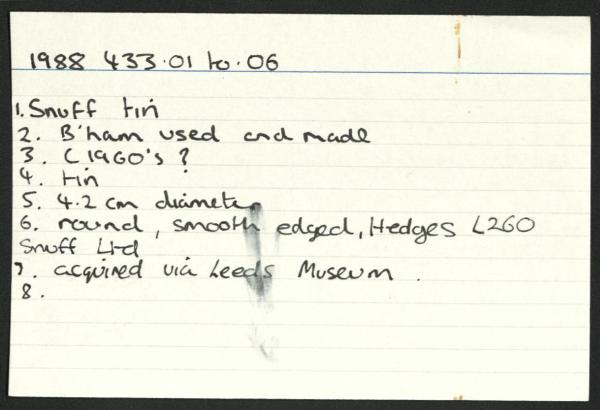 1988 433.01 to .06
1. Snuff tin
2. B'ham used and made
3. C 1960's ?
4. tin
5. 4.2 cm diameter
6. round, smooth edged, Hedges L260
Snuff Ltd
7. acquired via Leeds Museum.
8.